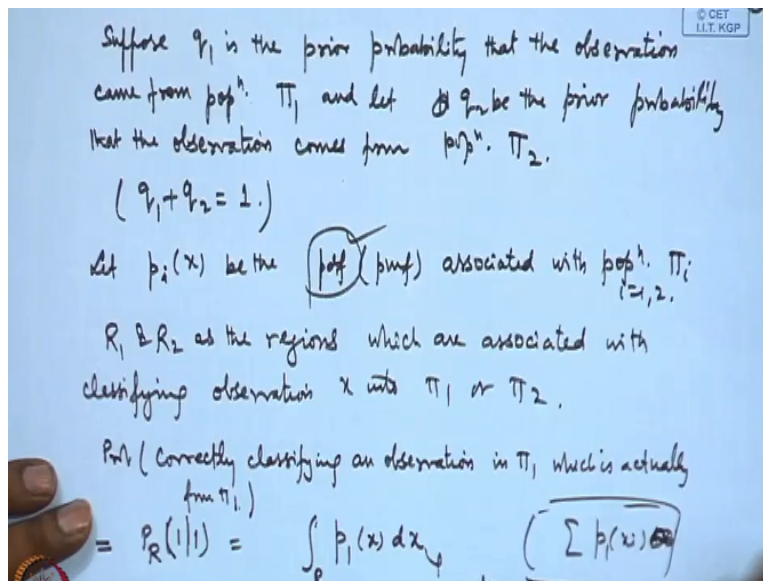 © CET
I.I.T. KGP
Suppose q₁ is the prior probability that the observation
came from popⁿ. Π₁ and let q₂ be the prior probability
that the observation comes from popⁿ. Π₂.
(q₁+q₂ = 1.)
Let pᵢ(x) be the pdf (pmf) associated with popⁿ. Πᵢ
i=1,2.
R₁ & R₂ as the regions which are associated with
classifying observation x into Π₁ or Π₂.
Prob (Correctly classifying an observation in Π₁ which is actually
from Π₁.)
= P_R(1|1) = ∫_R p₁(x) dx, (Σ p₁(x))